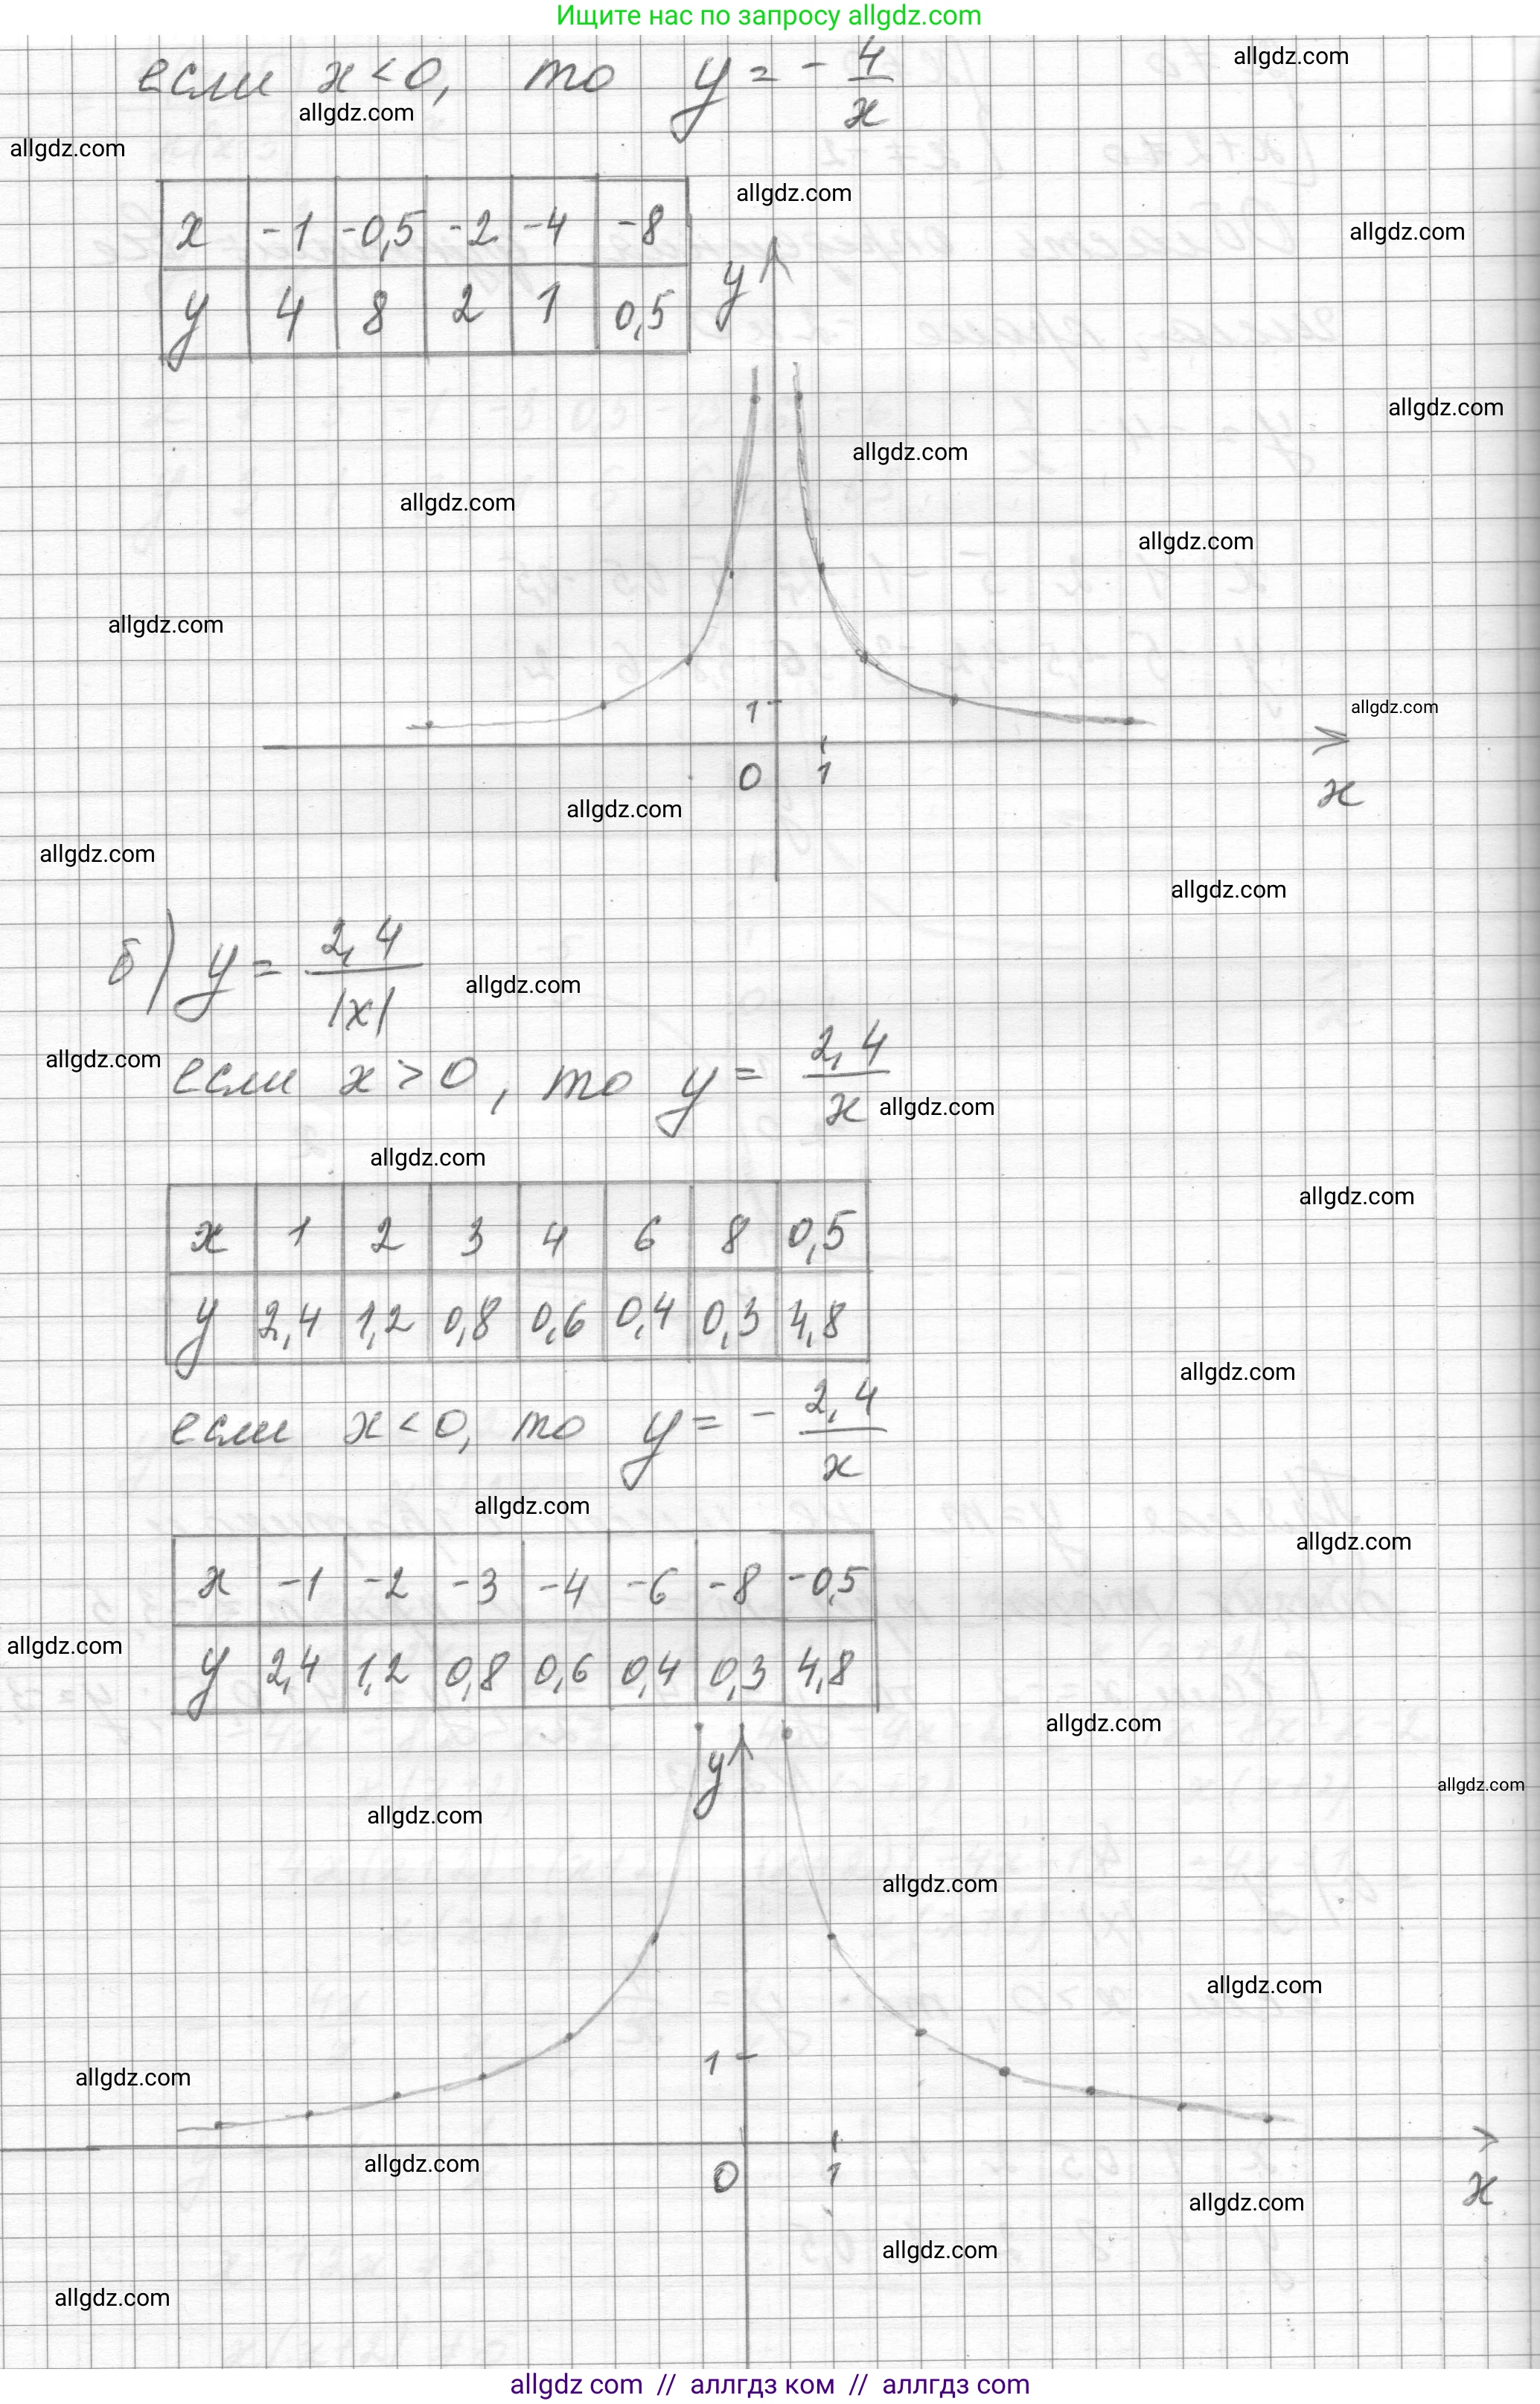 Ищите нас по запросу allgdz.com
если x < 0, то y = - 4/x
x -1 -0,5 -2 -4 -8
y 4 8 2 1 0,5
y
1
0 1
x
б) y = 2,4/|x|
если x > 0, то y = 2,4/x
x 1 2 3 4 6 8 0,5
y 2,4 1,2 0,8 0,6 0,4 0,3 4,8
если x < 0, то y = - 2,4/x
x -1 -2 -3 -4 -6 -8 -0,5
y 2,4 1,2 0,8 0,6 0,4 0,3 4,8
y
1
0 1
x
allgdz com // аллгдз ком // аллгдз com